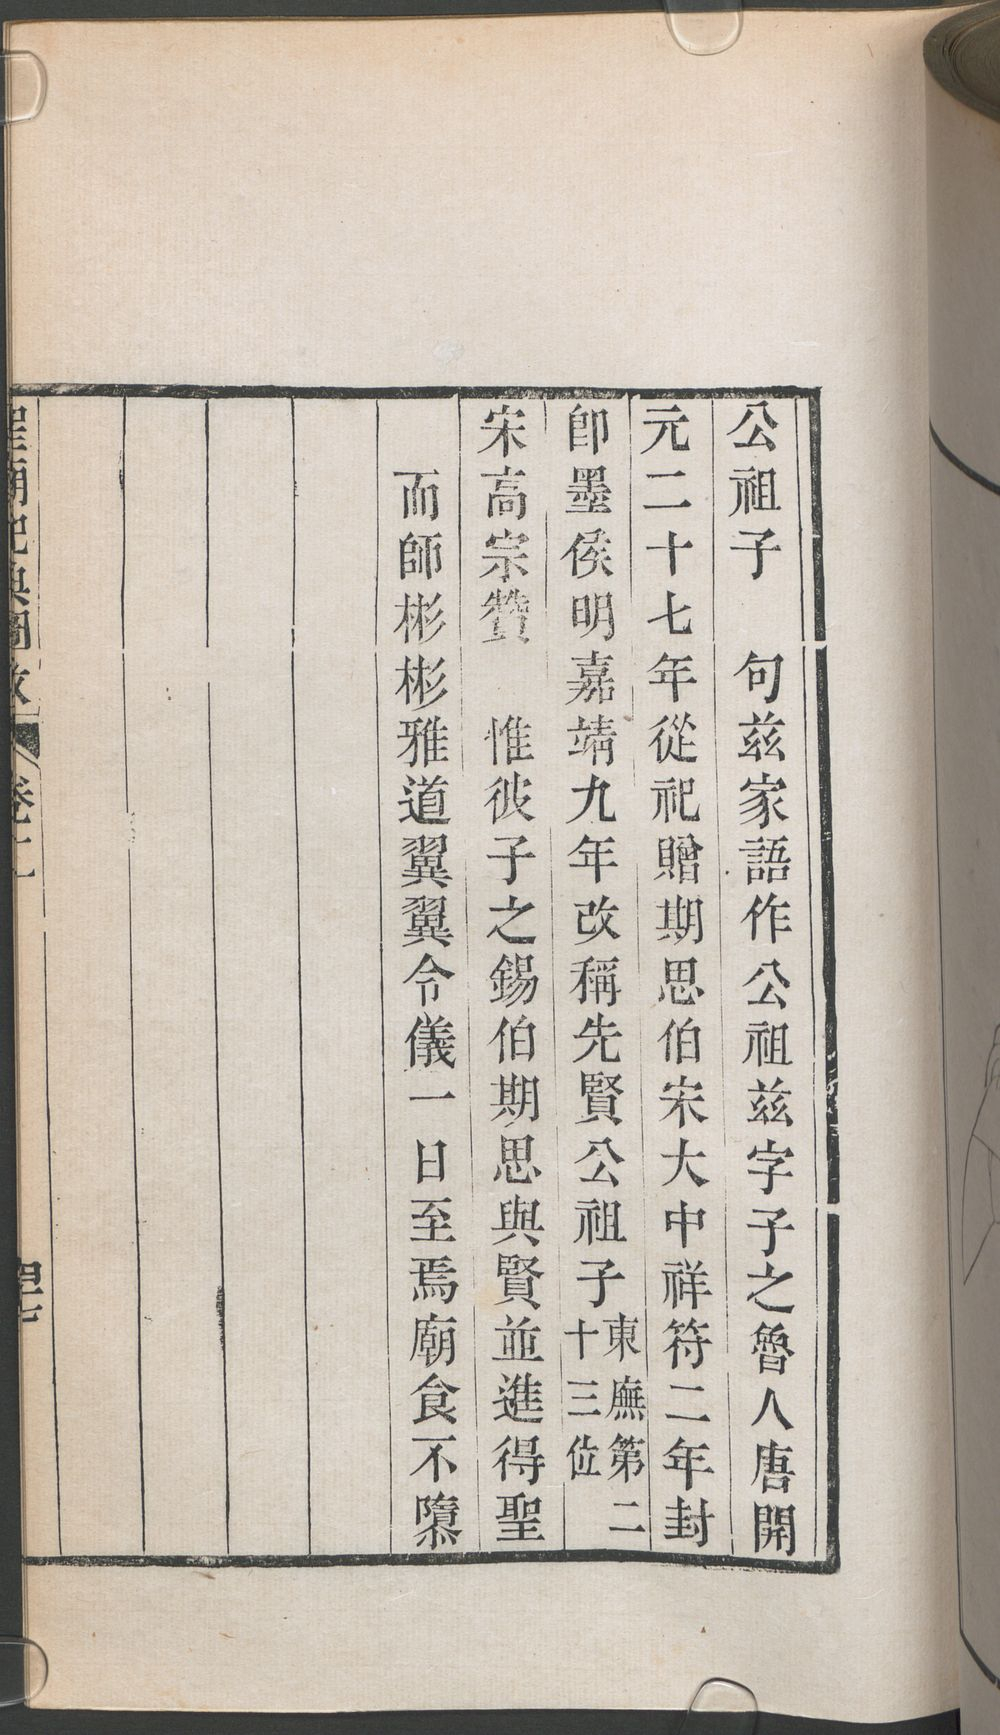 公祖子　句茲家語作公祖茲字子之魯人唐開
元二十七年從祀贈期思伯宋大中祥符二年封
卽墨侯明嘉靖九年改稱先賢公祖子東廡第二
十三位
宋高宗贊　惟彼子之錫伯期思與賢並進得聖
而師彬彬雅道翼翼令儀一日至焉廟食不隳
聖廟祀典圖攷
卷二
四七